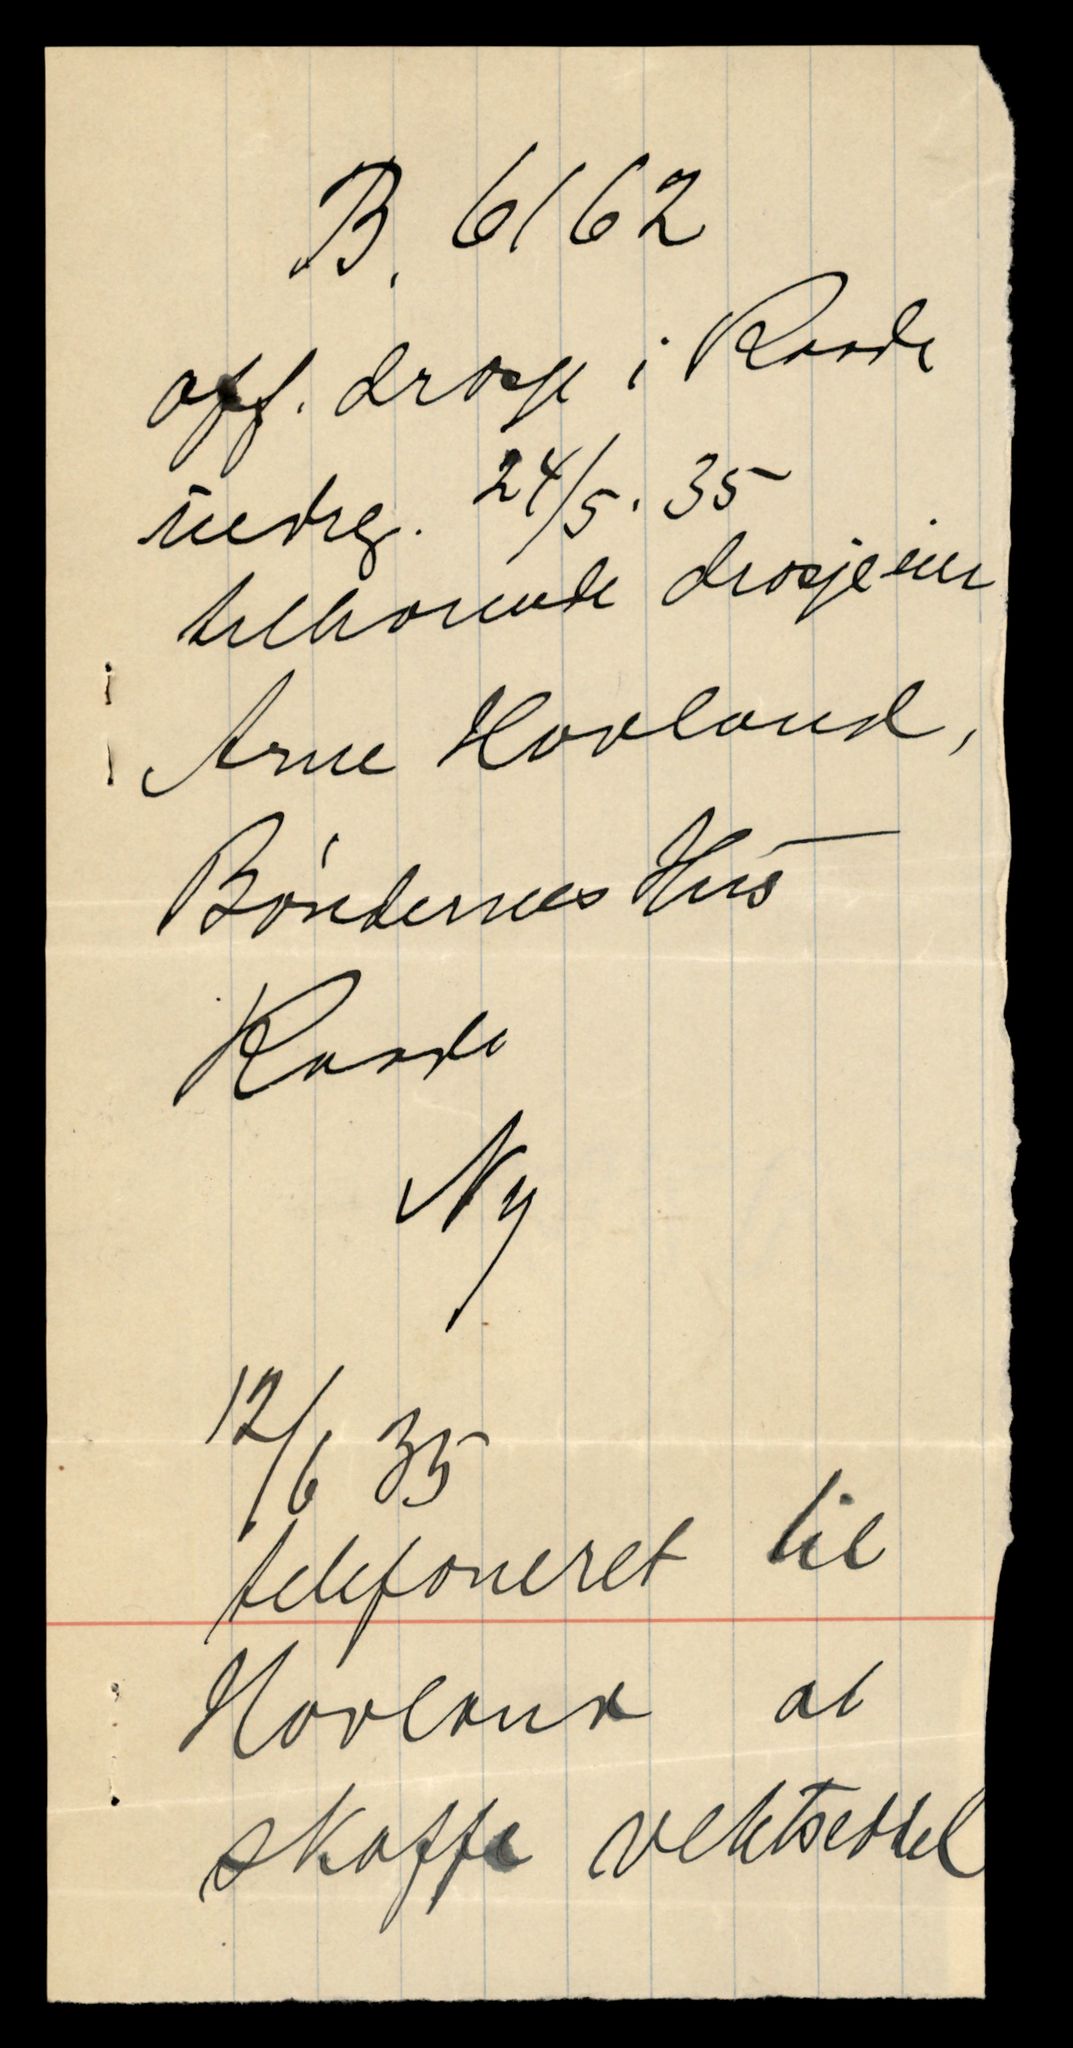 B. 6162
off. drosje i Raade
innreg. 24/5. 35
tilhørende drosjeeier
Arne Hovland,
Bøndernes Hus
Raade
Ny
12/6 35
telefoneret til
Hovland at
skaffe vektseddel